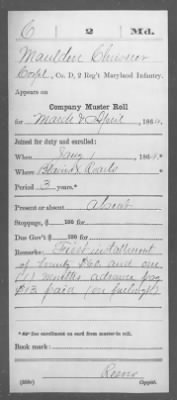 C 2 Md.
Mauldon
Corpl, Co. D, 2 Reg't Maryland Infantry.
Appears on
Company Muster Roll
for March & April, 1864.
Joined for duty and enrolled:
When Jany 1, 186
Where
Period 3 years.*
Present or absent Absent
Stoppage, $ 100 for
Due Gov't $ 100 for
Remarks: First installment
of bounty $60 and one
months advance pay
$13 paid (on furlough)
*See enrollment on card from muster-in roll.
Book mark:
Reeves
(358c) Copyist.